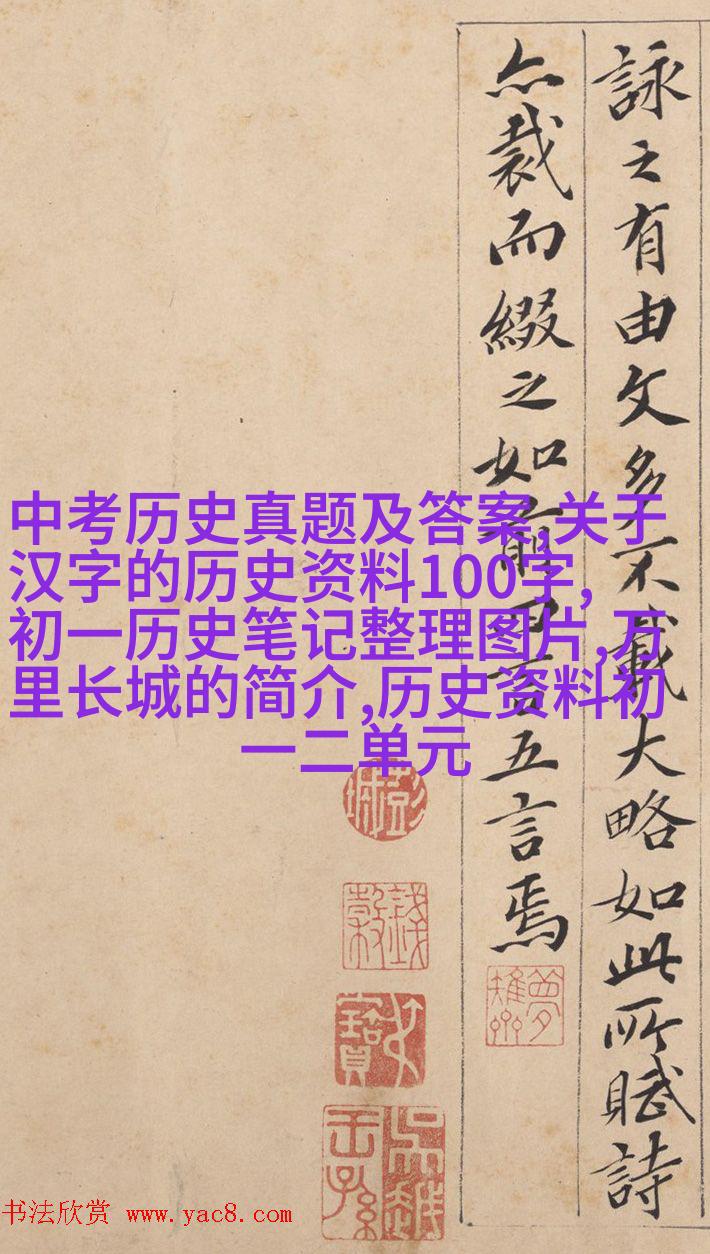 詠之有由文多不載大略如此所賦詩
亦裁而綴之如前四言五言焉
中考历史真题及答案,关于
汉字的历史资料100字,
初一历史笔记整理图片,万
里长城的简介,历史资料初
一二单元
书法欣赏 www.yac8.com